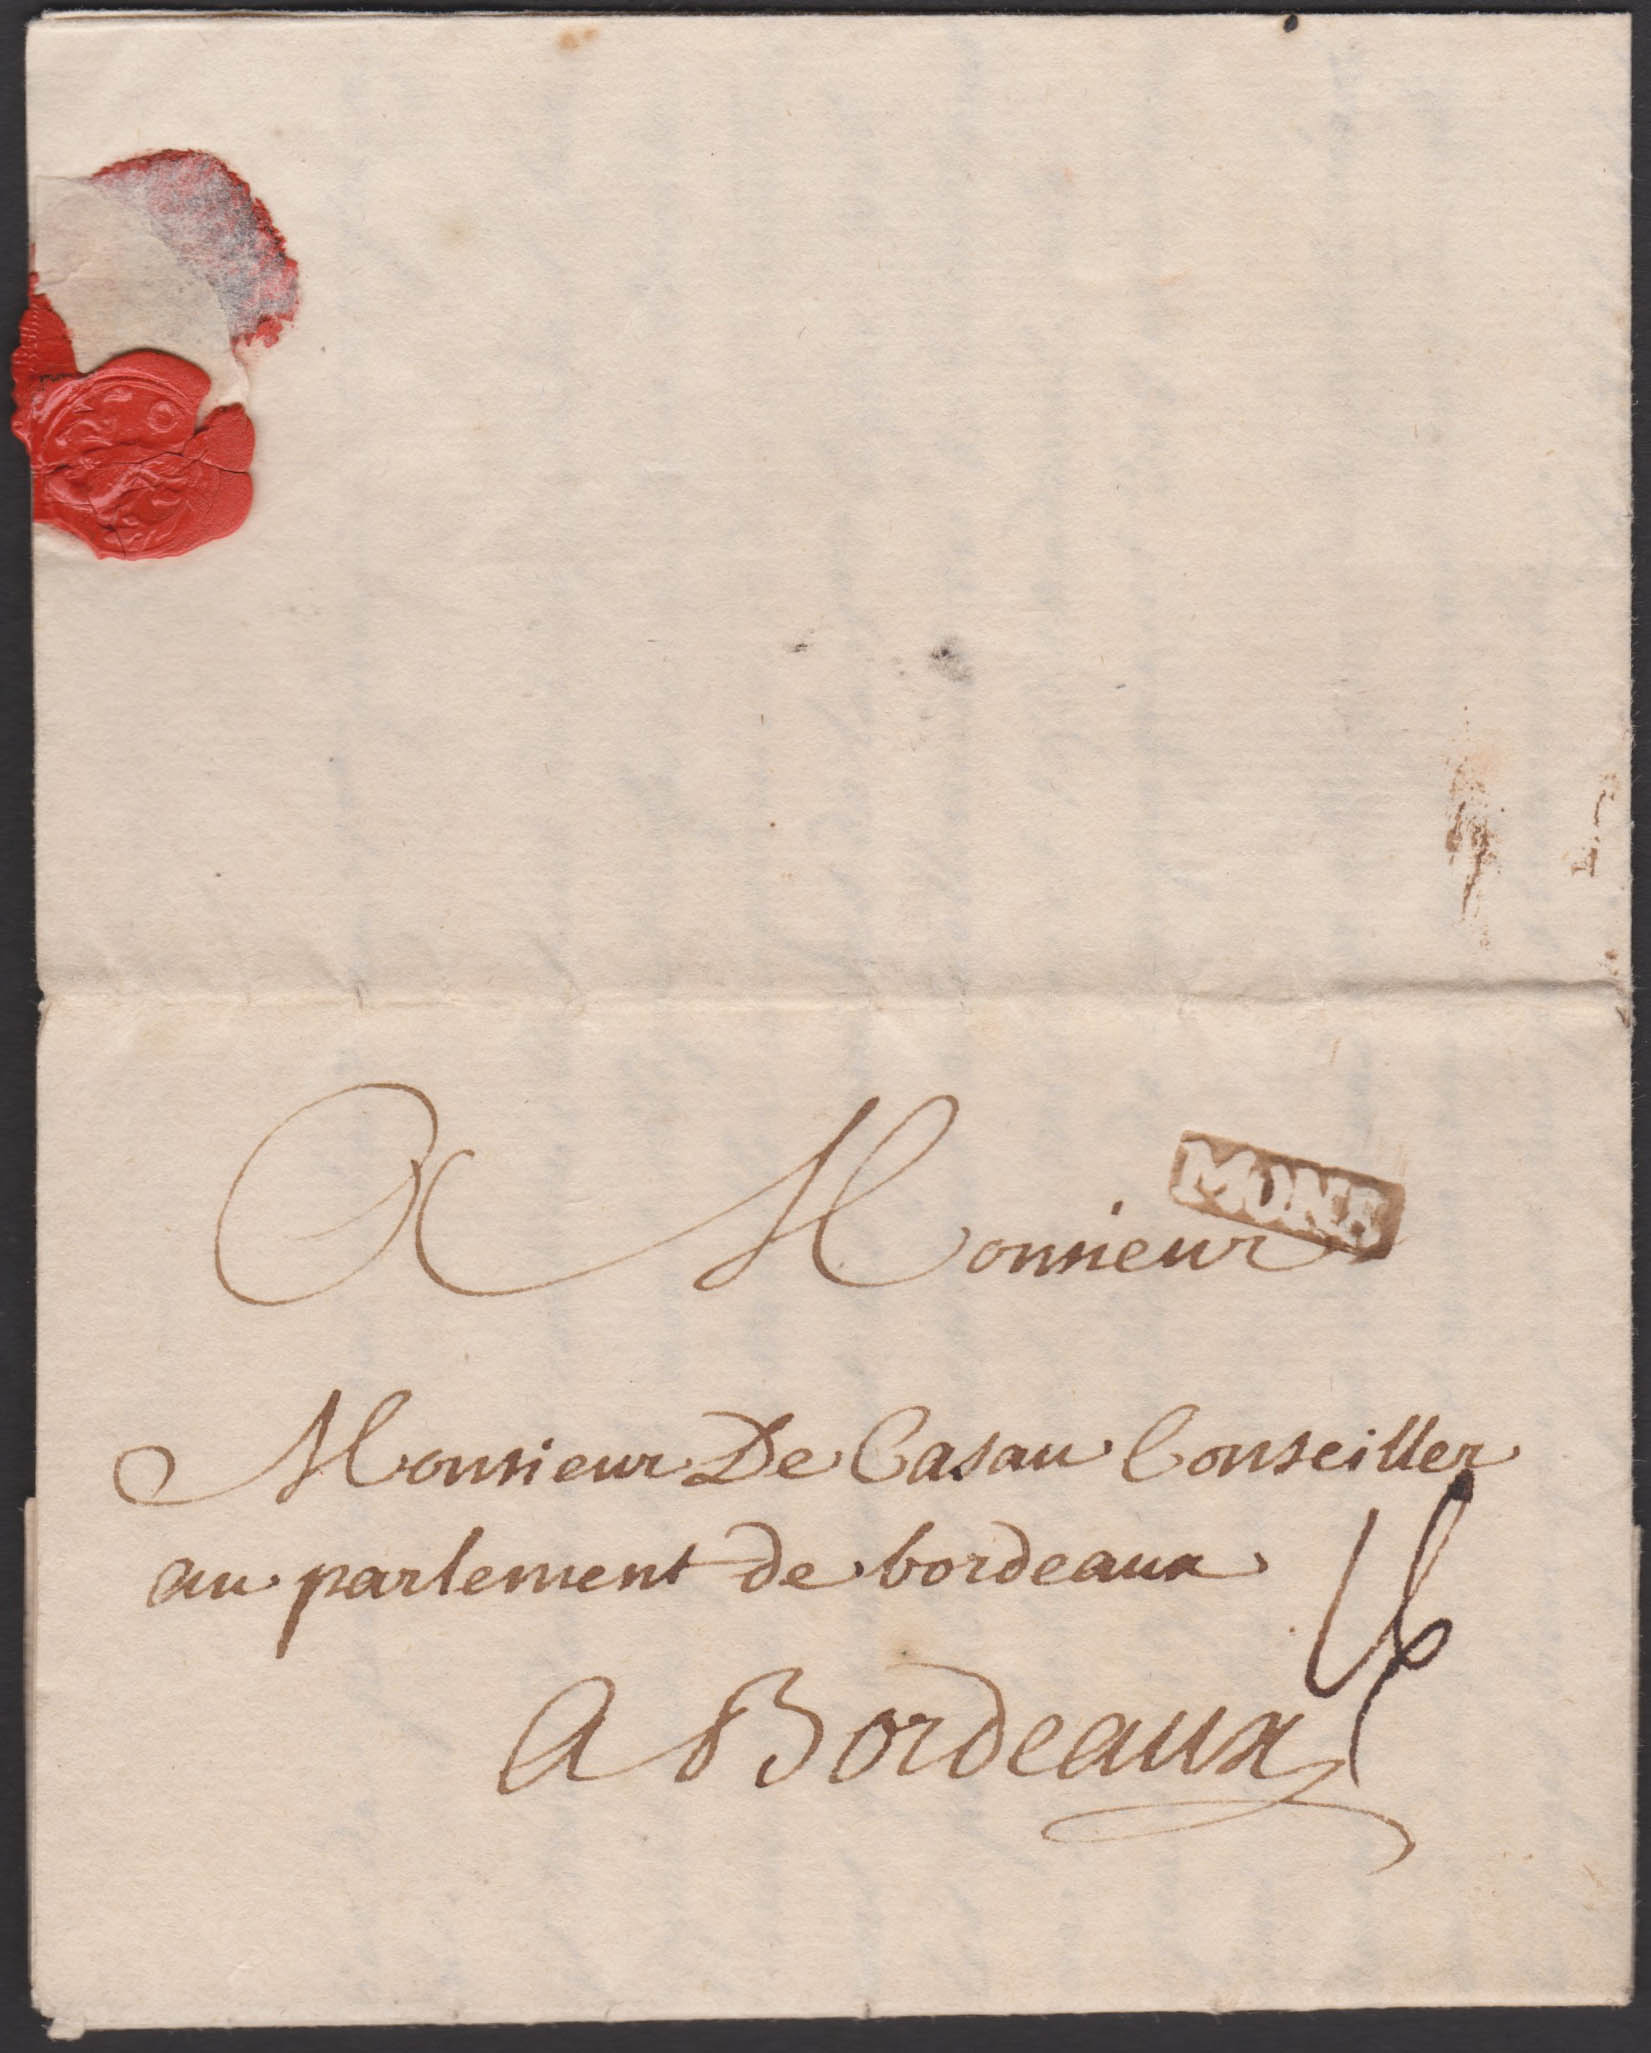 A Monsieur
Monsieur De Casau Conseiller
au parlement de bordeaux
A Bordeaux